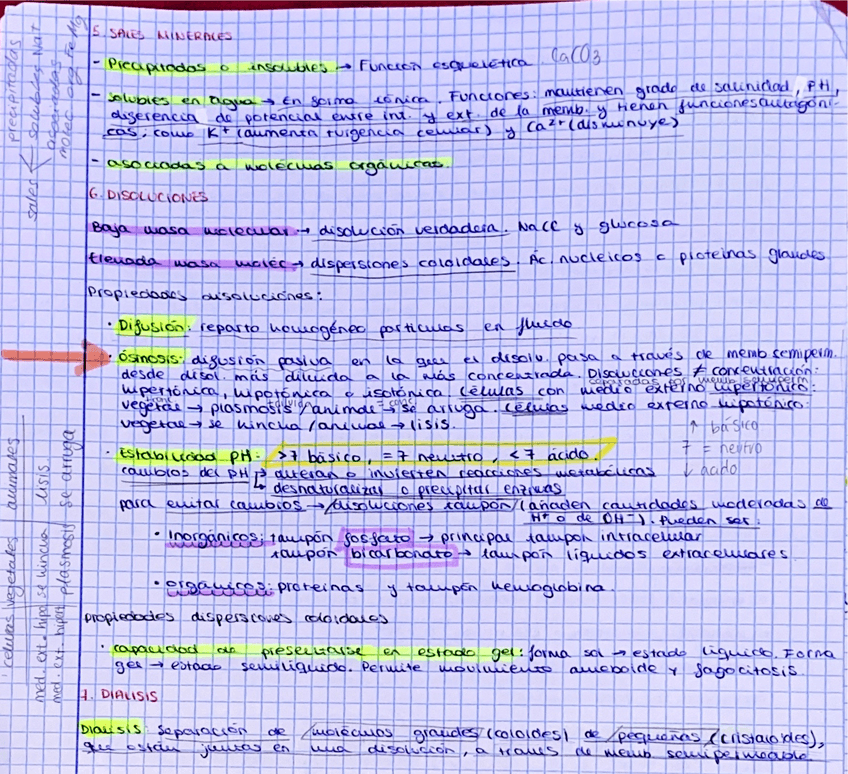 5. SALES MINERALES
- Precipitadas o insolubles → Función esquelética CaCO3
- solubles en agua → En forma iónica. Funciones: mantienen grado de salinidad, PH,
diferencia de potencial entre int. y ext. de la memb. y tienen funciones antagóni-
cas, como K+ (aumenta turgencia celular) y Ca2+ (disminuye)
- asociadas a moléculas orgánicas.
6. DISOLUCIONES
Baja masa molecular → disolución verdadera. NaCl y glucosa
Elevada masa moléc → dispersiones coloidales. Ác. nucleicos o proteinas grandes
Propiedades disoluciones:
· Difusión: reparto homogéneo partículas en fluido
· Ósmosis: difusión pasiva en la que el disolv. pasa a través de memb semiperm.
desde disol. más diluida a la más concentrada. Disoluciones ≠ concentración:
separadas por memb semiperm
hipertónica, hipotónica o isotónica. células con medio externo hipertónico:
vegetal → plasmosis / animal → se arruga. células medio externo hipotónico:
vegetal → se hincha / animal → lisis.
· Estabilidad pH: >7 básico, =7 neutro, <7 ácido.
↑ básico
7 = neutro
↓ ácido
cambios del pH → alteran o invierten reacciones metabólicas
↳ desnaturalizar o precipitar enzimas
para evitar cambios → disoluciones tampón (añaden cantidades moderadas de
H+ o de OH-). Pueden ser:
· Inorgánicos: tampón fosfato → principal tampon intracelular
tampón bicarbonato → tampón líquidos extracelulares
· orgánicos: proteinas y tampón hemoglobina.
propiedades dispersiones coloidales
· capacidad de presentarse en estado gel: forma sol → estado líquido. Forma
gel → estado semilíquido. Permite movimiento ameboide y fagocitosis.
7. DIALISIS
Dialisis: separación de moléculas grandes (coloides) de pequeñas (cristaloides),
que están juntas en una disolución, a través de memb semipermeable.
sales
precipitadas
solubles Na+
asociadas
molec org Fe Mg
celulas vegetales animales
med. ext. hipo se hincha lisis
med. ext. hipert plasmosis se arruga